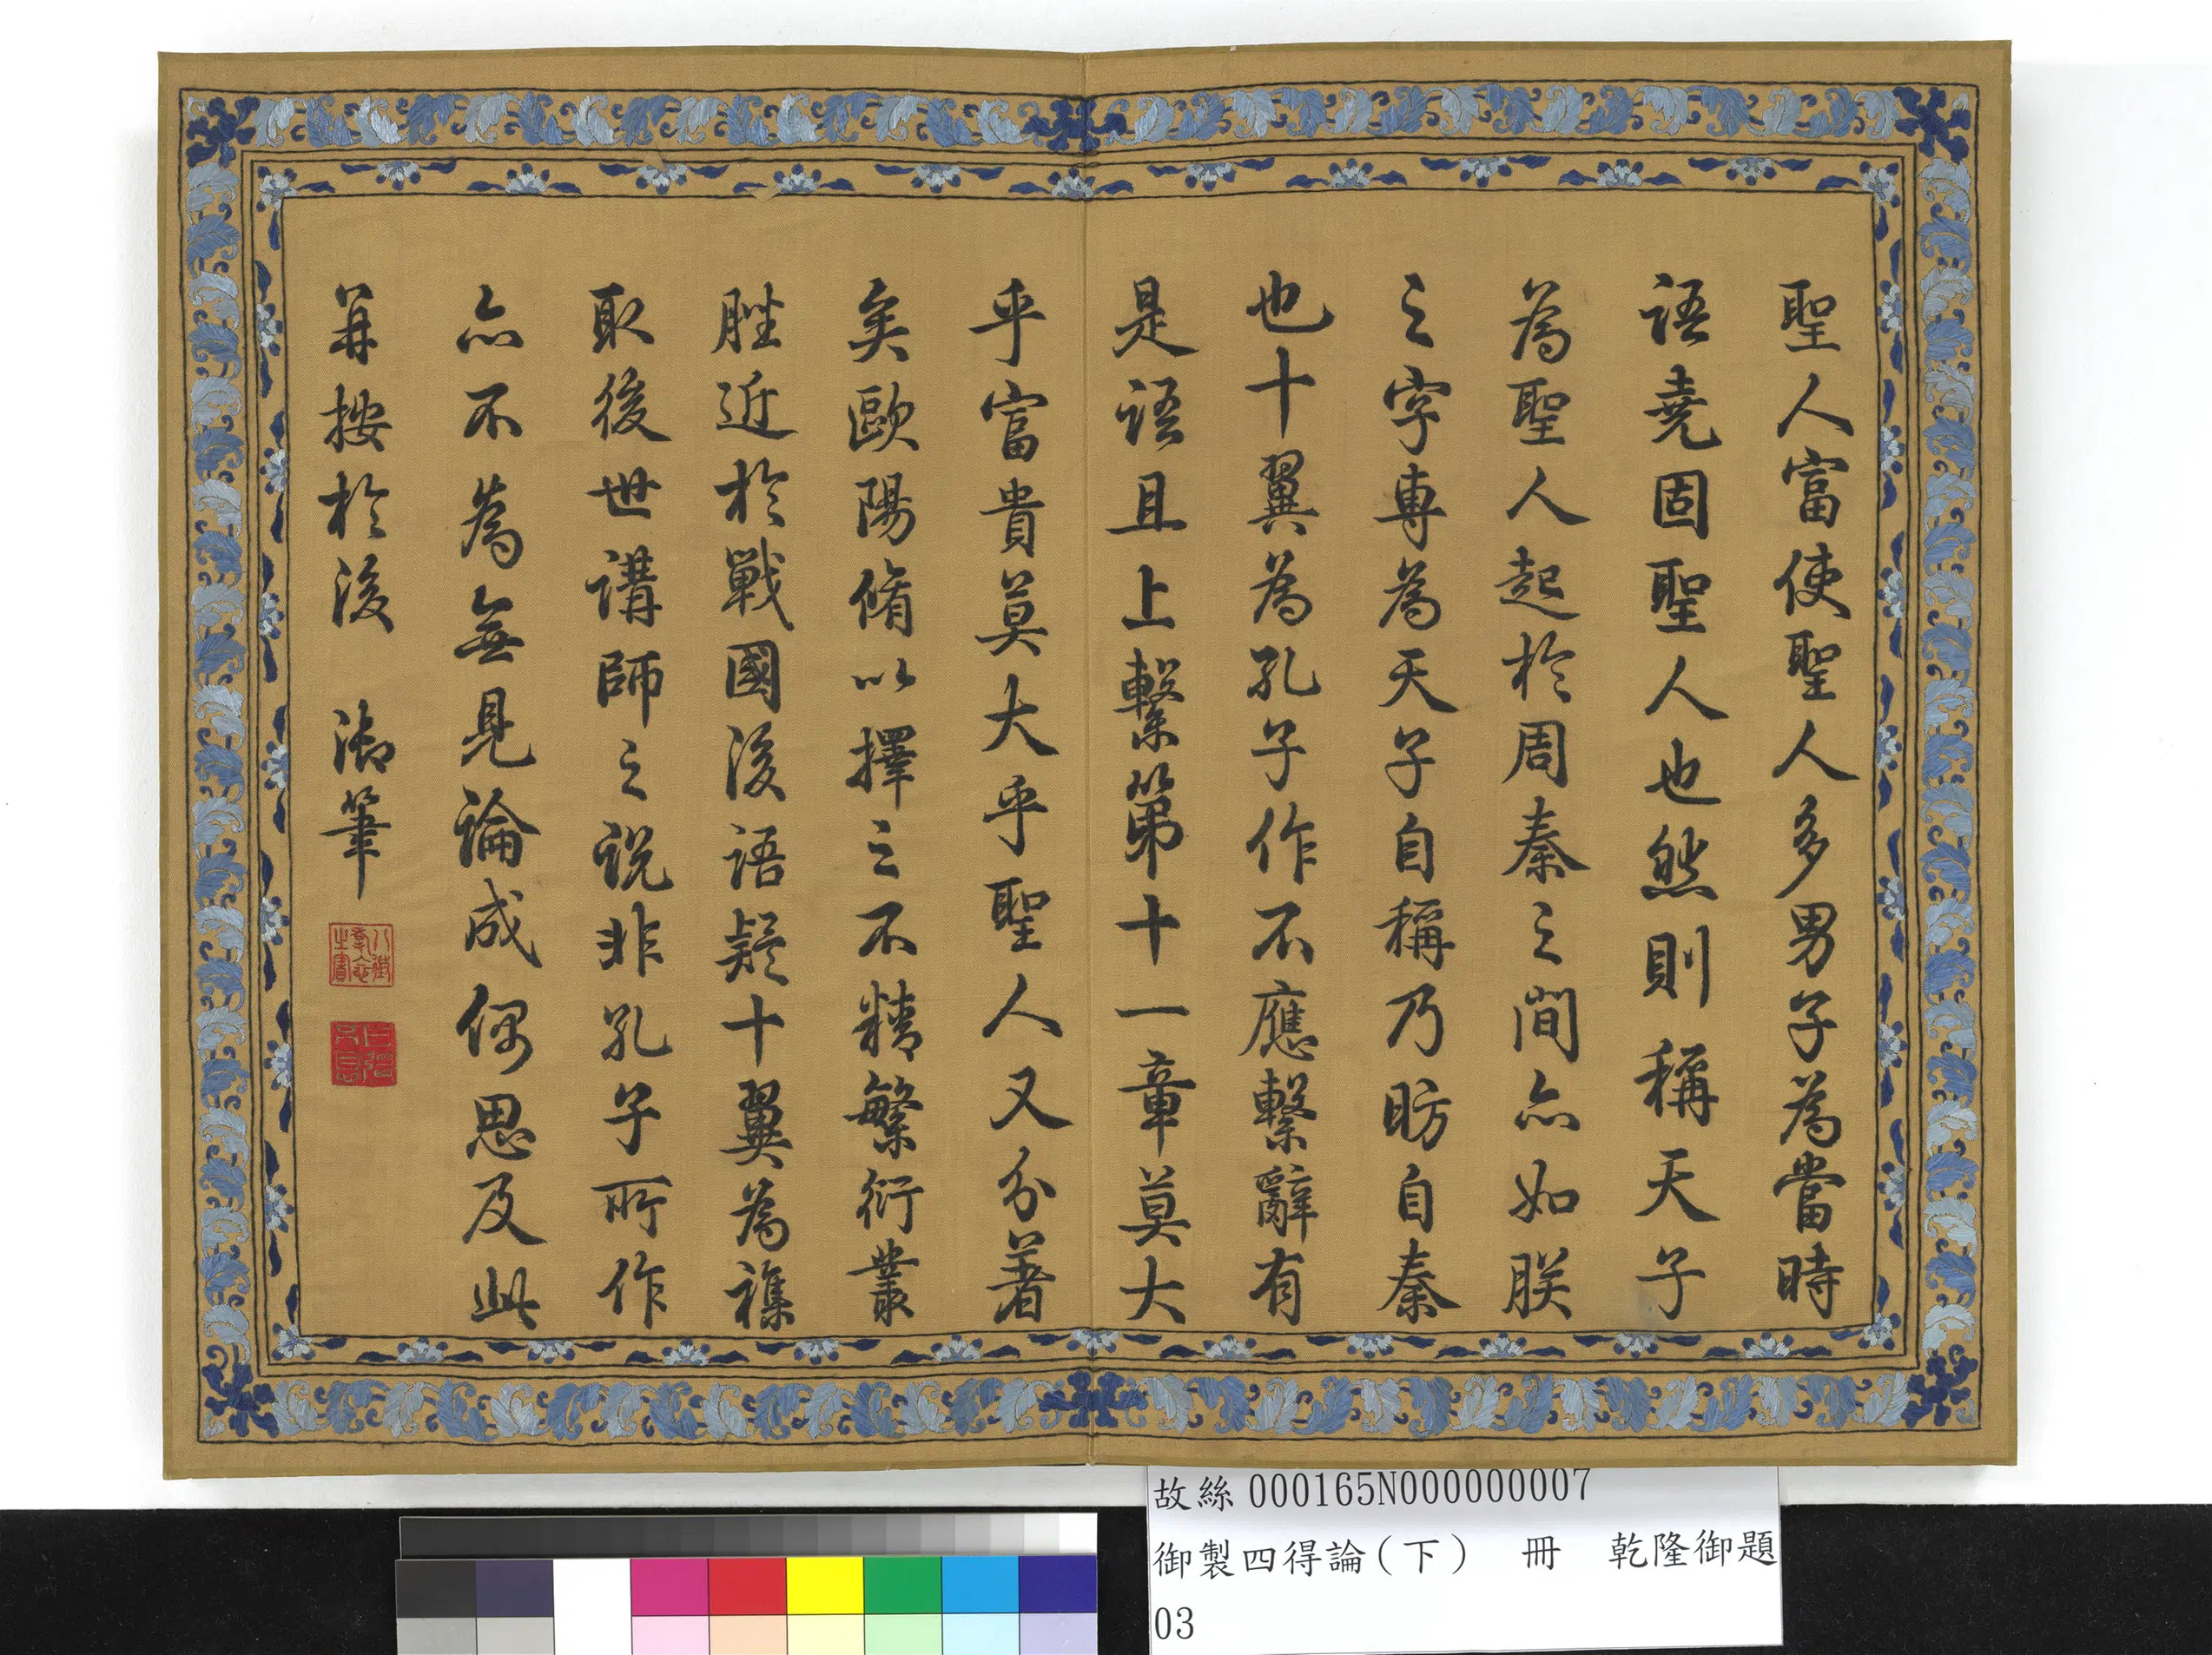 聖人富使聖人多男子為當時
語堯固聖人也然則稱天子
為聖人起於周秦之間亦如朕
之字專為天子自稱乃昉自秦
也十翼為孔子作不應繫辭有
是語且上繫第十一章莫大
乎富貴莫大乎聖人又分著
矣歐陽脩以擇之不精繁衍叢
脞近於戰國後語疑十翼為襍
取後世講師之說非孔子所作
亦不為無見論成偶思及此
并按於後 御筆
八徵耄念之寶
自強不息
故絲000165N000000007
御製四得論(下) 冊 乾隆御題
03